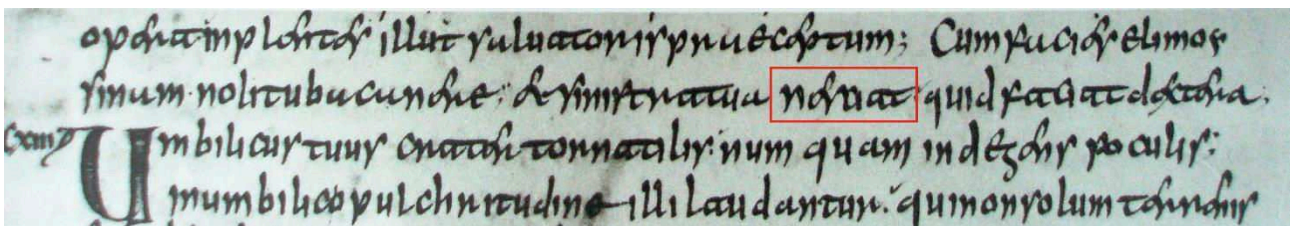 opera inplentes illut saluatoris praeceptum; Cum facies elimos
sinam noli tuba canere; et sinistra tua nesciat quid faciat dextera;
Umbilicus tuus crater tornatilis: num quam indegens poculis;
in umbilico pulchritudine illi laudantur: qui non solum